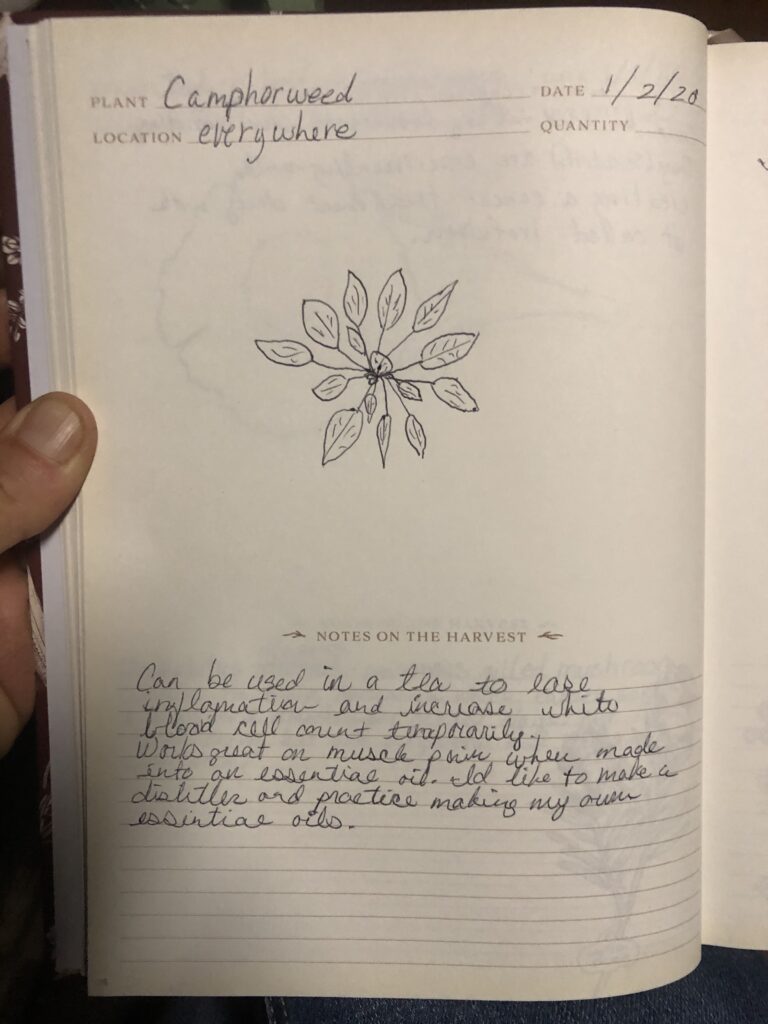 PLANT Camphorweed DATE 1/2/20
LOCATION everywhere QUANTITY
NOTES ON THE HARVEST
Can be used in a tea to ease
inflamation and increase white
blood cell count temporarily.
Works great on muscle pain when made
into an essential oil. Id like to make a
distiller and practice making my own
essintial oils.